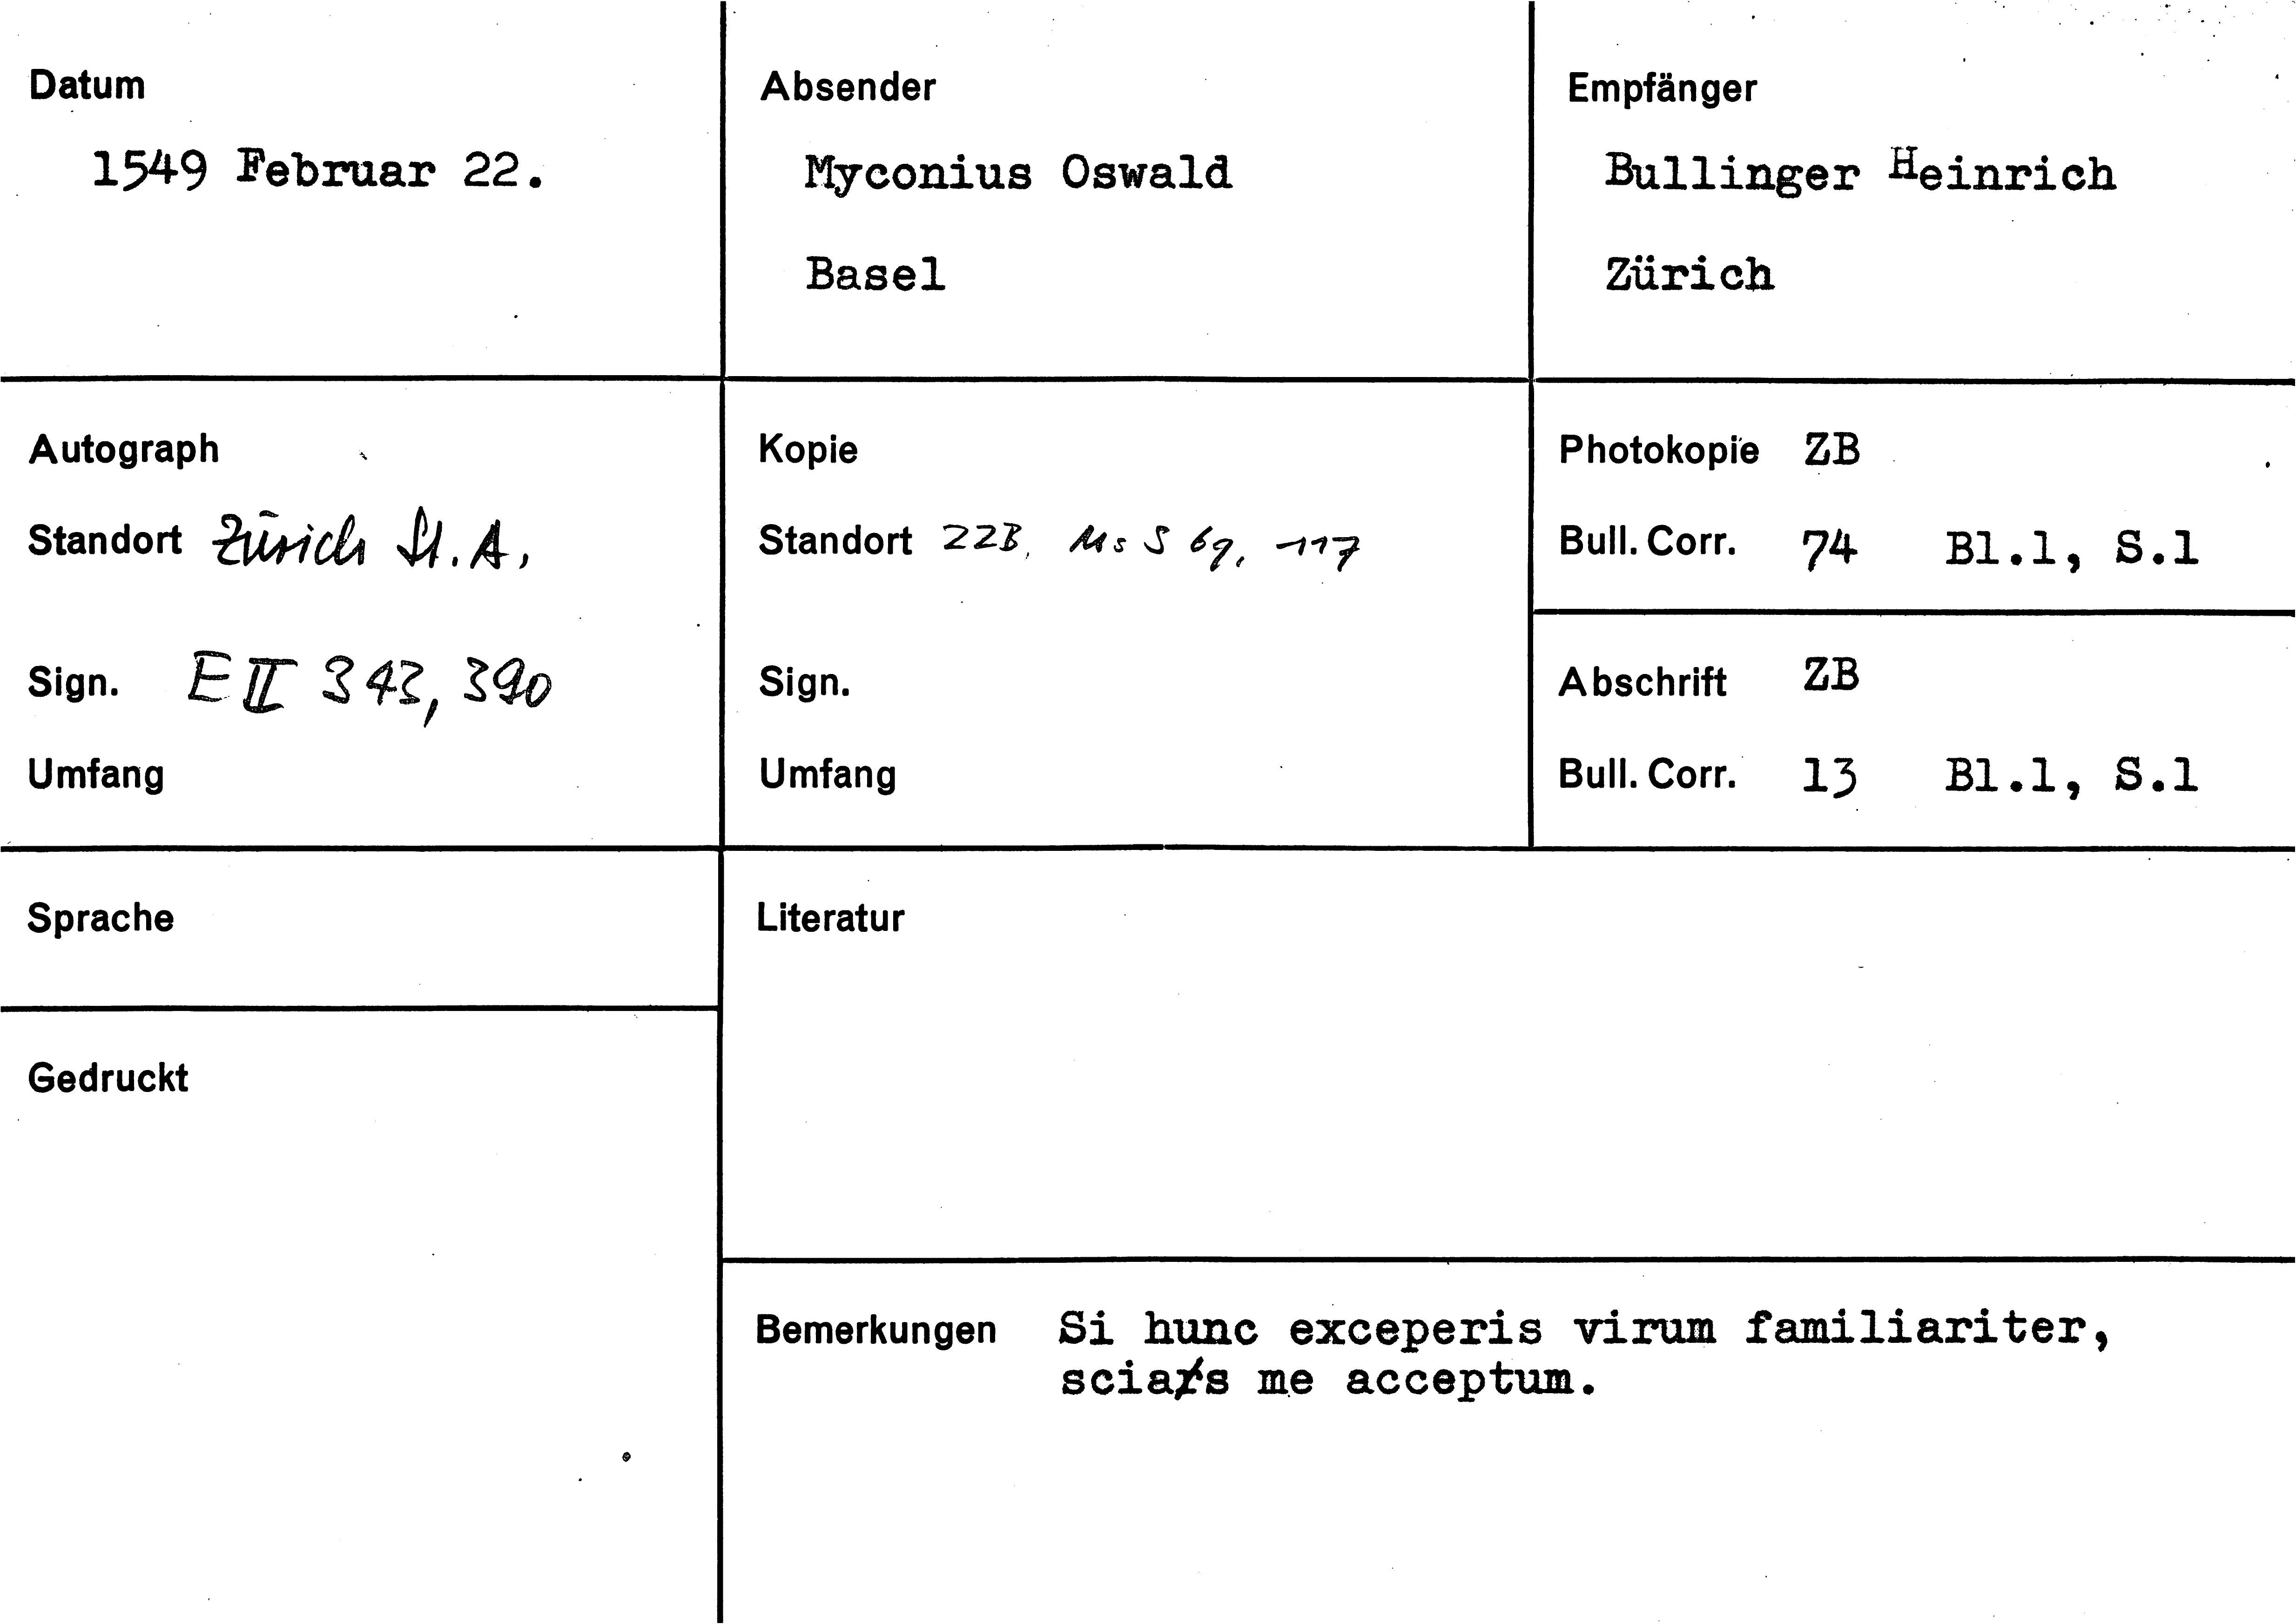 Datum
1549 Februar 22.
Absender
Myconius Oswald
Basel
Empfänger
Bullinger Heinrich
Zürich
Autograph
Standort Zürich St. A.
Sign. E II 343, 390
Umfang
Kopie
Standort ZZB, Ms S 69, 117
Sign.
Umfang
Photokopie ZB
Bull. Corr. 74 Bl.1, S.1
Abschrift ZB
Bull. Corr. 13 Bl.1, S.1
Sprache
Gedruckt
Literatur
Bemerkungen Si hunc exceperis virum familiariter,
scias me acceptum.